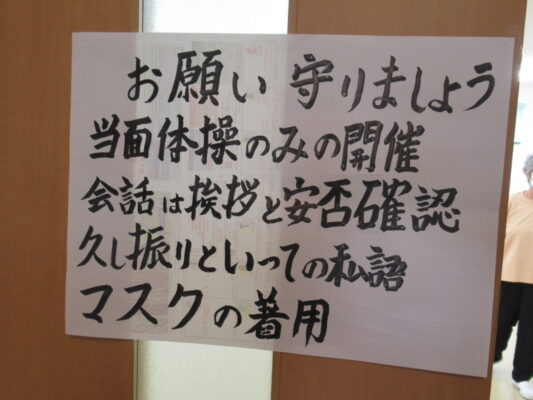 お願い 守りましょう
当面体操のみの開催
会話は挨拶と安否確認
久し振りといっての私語
マスクの着用